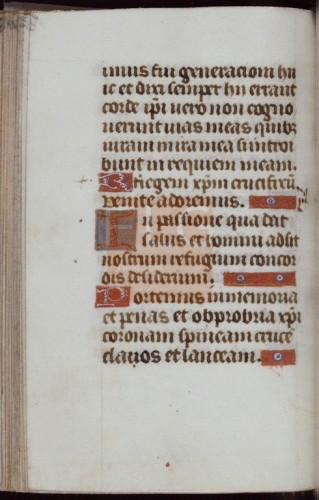 imus fui generacioni hu
ic et dixi semper hii errant
corde ip̄i vero non cogno
uerunt uias meas quibȝ
iuraui in ira mea si introi
bunt in requiem meam.
Regem xp̄m crucifixū
venite adoremus.
In passione qua dat
salus et homini adsit
nostrum refugium concor
dis desiderium.
Portemus in memoria
et penas et obprobria xp̄i
coronam spineam crucē
clauos et lanceam.